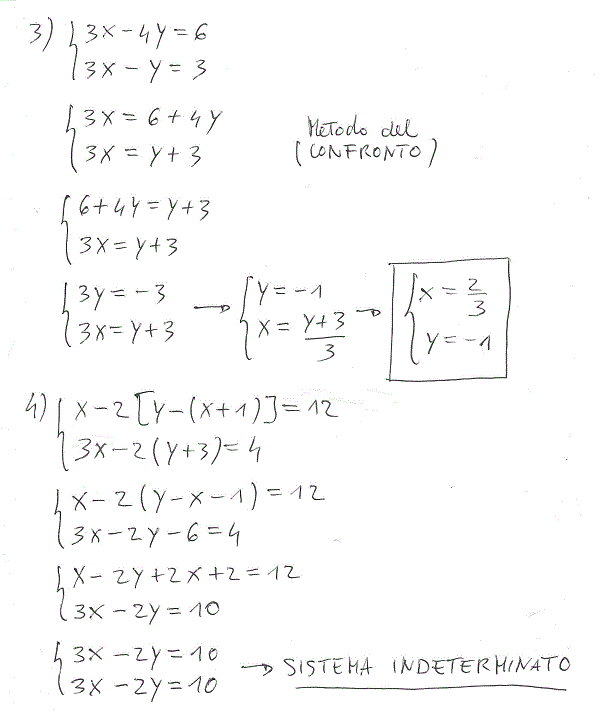 3) { 3x - 4y = 6
3x - y = 3
{ 3x = 6 + 4y
3x = y + 3
Metodo del
(CONFRONTO)
{ 6 + 4y = y + 3
3x = y + 3
{ 3y = -3
3x = y + 3
→ { y = -1
x = (y+3)/3
→ { x = 2/3
y = -1
4) { x - 2[y - (x+1)] = 12
3x - 2(y+3) = 4
{ x - 2(y - x - 1) = 12
3x - 2y - 6 = 4
{ x - 2y + 2x + 2 = 12
3x - 2y = 10
{ 3x - 2y = 10
3x - 2y = 10
→ SISTEMA INDETERMINATO